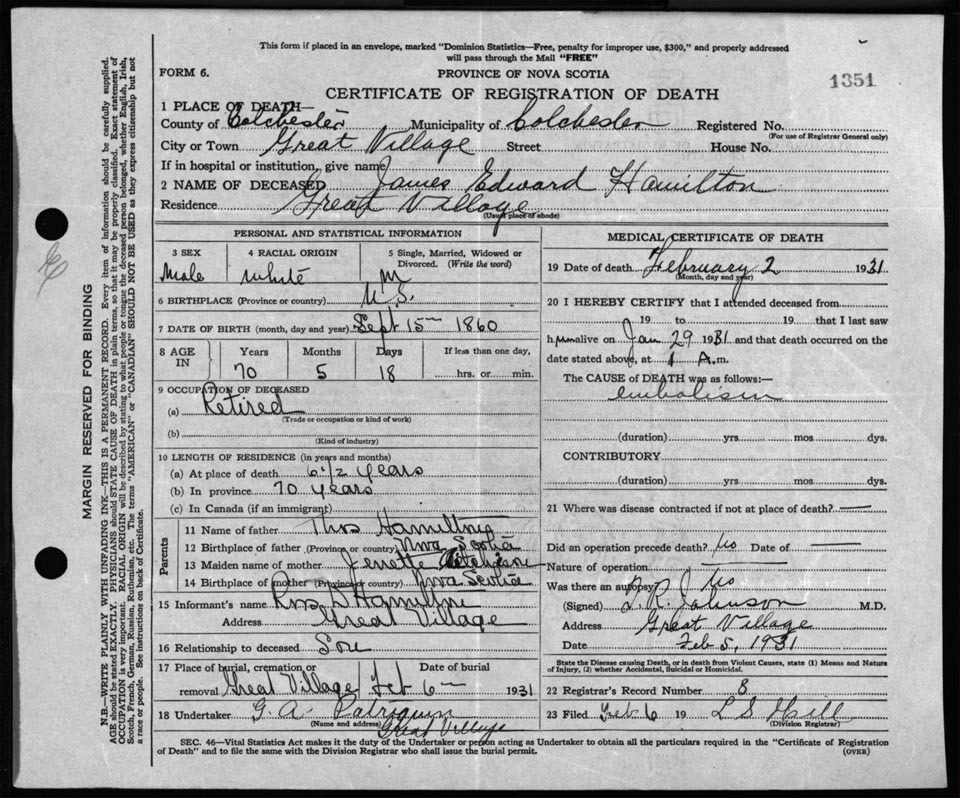 This form if placed in an envelope, marked "Dominion Statistics—Free, penalty for improper use, $300," and properly addressed
will pass through the Mail "FREE"
FORM 6.
PROVINCE OF NOVA SCOTIA
1351
CERTIFICATE OF REGISTRATION OF DEATH
1 PLACE OF DEATH—
County of Colchester Municipality of Colchester Registered No.
(For use of Registrar General only)
City or Town Great Village Street House No.
If in hospital or institution, give name
2 NAME OF DECEASED James Edward Hamilton
Residence Great Village
(Usual place of abode)
PERSONAL AND STATISTICAL INFORMATION
3 SEX 4 RACIAL ORIGIN 5 Single, Married, Widowed or
Divorced. (Write the word)
Male White M
6 BIRTHPLACE (Province or country) N.S.
7 DATE OF BIRTH (month, day and year) Sept 15th 1860
8 AGE IN Years Months Days If less than one day,
70 5 18 hrs. or min.
9 OCCUPATION OF DECEASED
(a) Retired
(Trade or occupation or kind of work)
(b)
(Kind of industry)
10 LENGTH OF RESIDENCE (in years and months)
(a) At place of death 6 1/2 years
(b) In province 70 years
(c) In Canada (if an immigrant)
Parents
11 Name of father Thos Hamilton
12 Birthplace of father (Province or country) Nova Scotia
13 Maiden name of mother
14 Birthplace of mother (Province or country) Nova Scotia
15 Informant's name Ross D Hamilton
Address Great Village
16 Relationship to deceased Son
17 Place of burial, cremation or Date of burial
removal Great Village Feb 6th 1931
18 Undertaker G. A. Patriquin
(Name and address) Great Village
MEDICAL CERTIFICATE OF DEATH
19 Date of death February 2 1931
(Month, day and year)
20 I HEREBY CERTIFY that I attended deceased from
19 to 19 that I last saw
h im alive on Jan 29 1931 and that death occurred on the
date stated above, at 1 A.m.
The CAUSE of DEATH was as follows:—
embolism
(duration) yrs. mos dys.
CONTRIBUTORY
(duration) yrs. mos. dys.
21 Where was disease contracted if not at place of death? —
Did an operation precede death? No Date of —
Nature of operation
Was there an autopsy? No
(Signed) Johnson M.D.
Address Great Village
Date Feb 5, 1931
State the Disease causing Death, or in death from Violent Causes, state (1) Means and Nature
of Injury, (2) whether Accidental, Suicidal or Homicidal.
22 Registrar's Record Number 8
23 Filed Feb 6 19 L S Hill
(Division Registrar)
SEC. 46—Vital Statistics Act makes it the duty of the Undertaker or person acting as Undertaker to obtain all the particulars required in the "Certificate of Registration
of Death" and to file the same with the Division Registrar who shall issue the burial permit.
(OVER)
MARGIN RESERVED FOR BINDING
N.B.—WRITE PLAINLY WITH UNFADING INK—THIS IS A PERMANENT RECORD. Every item of information should be carefully supplied.
AGE should be stated EXACTLY. PHYSICIANS should STATE CAUSE OF DEATH in plain terms, so that it may be properly classified. Exact statement of
OCCUPATION is very important. RACIAL ORIGIN will be described by stating to what people or tongue the deceased person belonged, whether English, Irish,
Scotch, French, German, Russian, Ruthenian, etc. The terms "AMERICAN" or "CANADIAN" SHOULD NOT BE USED as they express citizenship but not
a race or people. See instructions on back of Certificate.